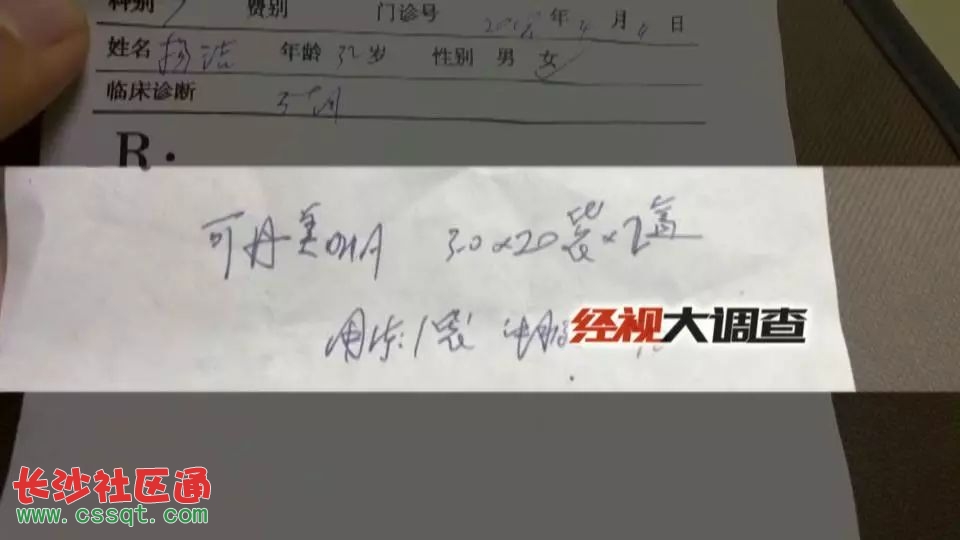 科别 费别 门诊号 年 4 月 4 日
姓名 杨洁 年龄 32 岁 性别 男 女
临床诊断
R.
可丹美DHA 3.0×20袋×2盒
用法: 1袋
经视大调查
长沙社区通
www.cssqt.com